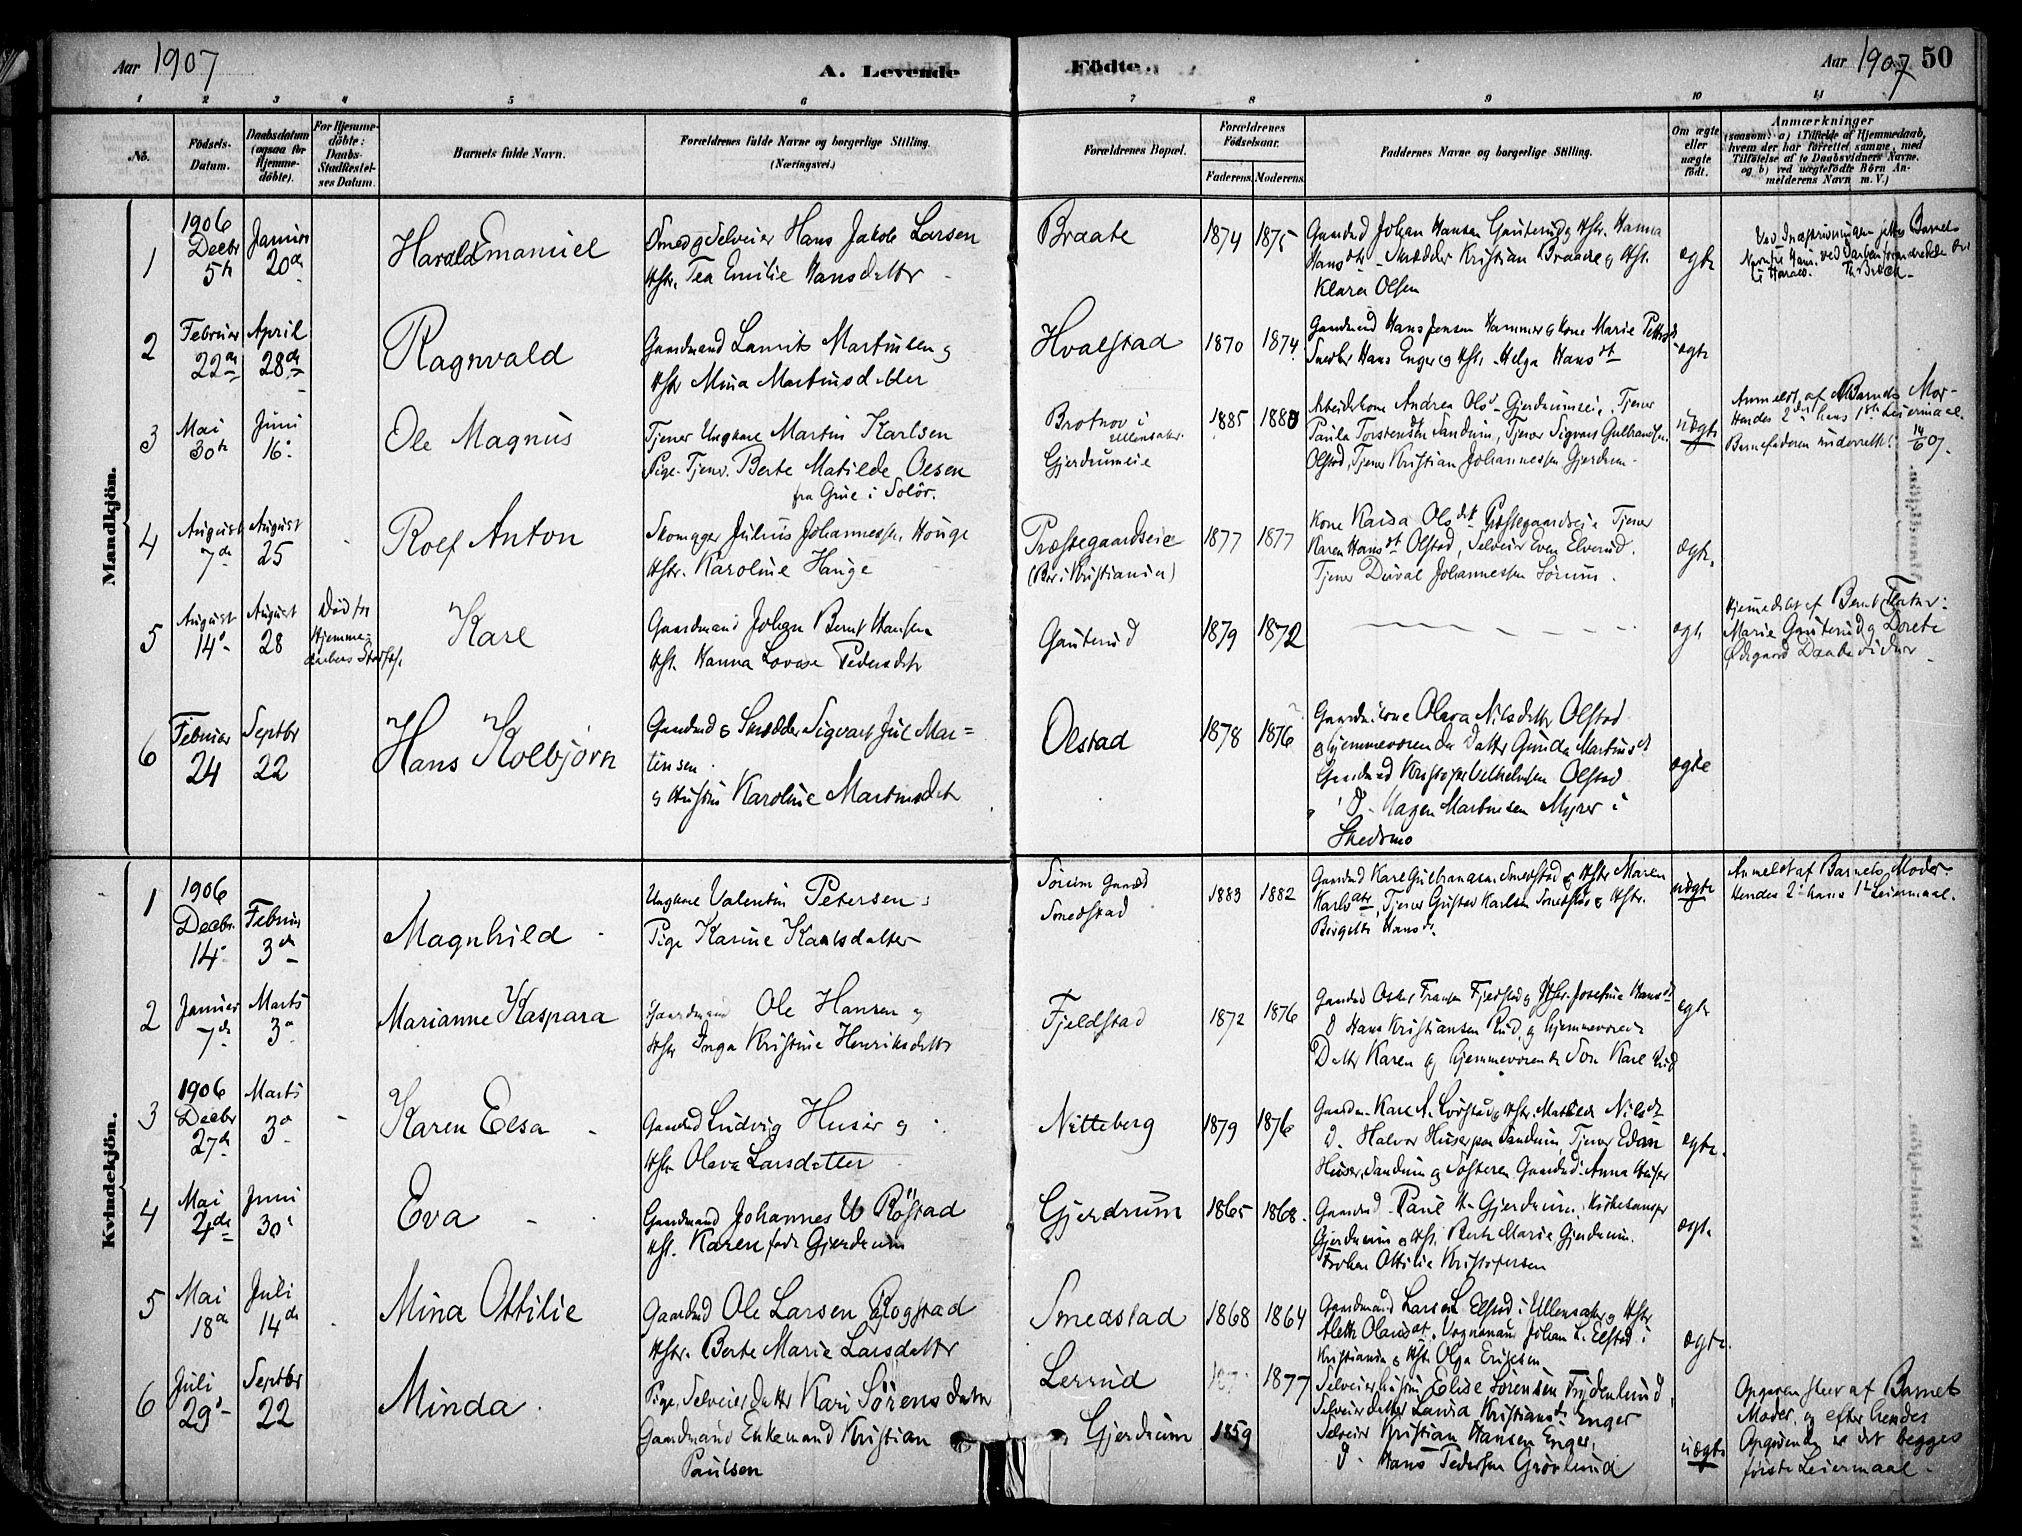 Aar 1907
A. Levende
Födte.
Aar 1907
50
1 2 3 4 5 6 7 8 9 10 11
No.
Födsels-
Datum.
Daabsdatum
(ogsaa for
Hjemme-
döbte).
For Hjemme-
döbte:
Daabs-
Stadfæstel-
ses Datum.
Barnets fulde Navn.
Forældrenes fulde Navne og borgerlige Stilling.
(Næringsvei.)
Forældrenes Bopæl.
Forældrenes
Födselsaar.
Faderens. Moderens.
Faddernes Navne og borgerlige Stilling.
Om ægte
eller
uægte
födt.
Anmærkninger
(saasom: a) i Tilfælde af Hjemmedaab,
hvem der har forrettet samme, med
Tilföielse af to Daabsvidners Navne.
og b) ved uægtefödte Börn An-
melderens Navn m. V.)
Mandkjön.
1
1906
Decbr
5te
Januar
20de
Harald Emanuel
Smed og Selveier Hans Jakob Larsen
Hstr. Tea Emilie Hansdatter
Braate
1874 1875
Gaardmd Johan Hansen Gauterud og Hstr. Hanna
Hansdtr - Skrædder Kristian Braate og Hstr.
Klara Olsen
ægte
2
Februar
22de
April
28de
Ragnvald
Gaardmand Laurits Martinsen og
Hstr Mina Martinsdatter
Hvalstad
1870 1874
Gaardmd Hans Jensen Hammer og Kone Marie
Snedker Hans Enger og Hstr. Helga Hansdt
ægte
3
Mai
30te
Juni
16
Ole Magnus
Tjener Ungkarl Martin Karlsen
Pige-Tjener Berte Matilde Olsen
fra Grue i Solör.
Brotnov i
Ullensaker
Gjerdrumeie
1885 1880
Arbeidskone Andrea Olsd - Gjerdrumseie, Tjener
Paula Torstensdtr Sandum, Tjener Sigvart Gulbrandsen
Olstad, Tjener Kristian Johannessen Gjerdrum.
uægte
Anmeldt af Barnets Mor -
Hendes 2det hans 1ste Leiermaal.
Barnefaderen underrettet 14/6 07.
4
August
7de
August
25
Rolf Anton
Skomager Julius Johannessen Houge
Hstr. Karoline Hauge
Præstegaardseie
(Bor i Kristiania)
1877 1877
Kone Kaisa Olsdt Præstegaardseie Tjener
Karen Hansdt Olstad, Selveier Even Elverud.
Tjener Johannessen Sörum.
ægte.
5
August
14
August
28
Död før
Hjemme-
daabens Stadf.
Kare
Gaardmand Johan Bernt Hansen
Hst. Hanna Lovise Pedersdtr
Gauterud
1879 1872
ægte
Hjemmedöbt af Bernt
Marie Gauterud og Dorete
Ødegaard Daabsvidner
6
Februar
24
Septbr
22
Hans Kolbjörn
Gaardmd & Skrædder Sigvart Jul Mar=
tinsen
og Hustru Karoline Martinsdtr
Olstad
1878 1876
Gaardmkone Olava Nilsdatter Olstad
& hjemmeværende Datter Gunda Martinsdt
Gaardmd Kristoffer Vilhelmsen Olstad
D. Hagen Martinsen Myrer i
Skedsmo
ægte
Kvindekjön.
1
1906
Decbr.
14
Februar
3de
Magnhild
Ungkarl Valentin Petersen
Pige Karine Karlsdatter
Sörum Gaard
Smedstad
1883 1882
Gaardmd Karl Gulbrandsen Smedstad & Hstr Maren
Karlsdtr, Tjener Gustav Karlsen Smedstad & Hstr.
Birgitte Hansd.
uægte
Anmeldt af Barnets Moder
Hendes 2 hans 1ste Leiermaal.
2
Januar
7de
Marts
3
Marianne Kaspara
Gaardmand Ole Hansen og
Hstr Inga Kristine Henriksdatter
Fjeldstad
1872 1876
Gaardmd Oskar Fransen Fjeldstad og Hstr. Josefine Hansdt
D Hans Kristiansen Rud, og hjemmeværende
Datter Karen og hjemmeværende Søn Karl Rud
ægte
3
1906
Decbr
27de
Marts
3
Karen Elsa
Gaardmd Ludvig Huser og
Hstr Olava Larsdatter
Nitteberg
1879 1876
Gaardm. Karl A. Lystad & Hstr. Matilda Nilsd
D. Halvor Huser paa Sandum, Tjener Edvin
Huser, Sandum og Søsteren Gaardmd. Anna Huser
ægte.
4
Mai
4de
Juni
30
Eva
Gaardmand Johannes U Röstad
Hst. Karen född Gjerdrum
Gjerdrum
1865 1868.
Gaardmd Paul H. Gjerdrum, Kirkesanger
Gjerdrum & Hst. Berte Marie Gjerdrum.
Frøken Ottilie Kristofersen
ægte.
5
Mai
18de
Juli
14de
Mina Ottilie
Gaardmd Ole Larsen Rogstad
Hstr. Berte Marie Larsdatter
Smedstad
1868 1864
Gaardmand Lars L. Elstad i Ullensaker og Hstr
Alette Olausdt, Vognmand Johan L. Elstad i
Kristiania & Hstr Olga Eriksen
ægte.
6
Juli
29
Septbr
22
Minda
Pige, Selveierdatter Kari Sörensdatter
Gaardmand Enkemand Kristian
Paulsen
Lerrud
Gjerdrum
1877
1859
Selveierhustru Elise Sörensen Frydenlund,
Selveierdatter Laura Kristiansd. Enger
Selveier Kristian Hansen Enger,
D. Hans Pedersen Grönlund
uægte
Opgaven skeer af Barnets
Moder, og efter hendes
Opgivende er det begges
förste Leiermaal.